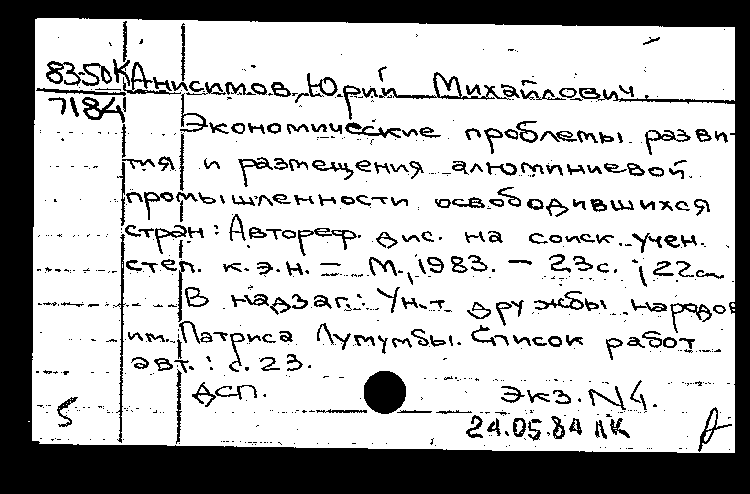 83-50К Анисимов, Юрий Михайлович.
7184
Экономические проблемы разви-
тия и размещения алюминиевой
промышленности освободившихся
стран: Автореф. дис. на соиск. учен.
степ. к.э.н. = М., 1983. - 23с.; 22см
В надзаг.: Ун-т дружбы народов
им. Патриса Лумумбы. Список работ
авт.: с. 23.
ДСП. экз. N4.
5 24.05.84 ЛК